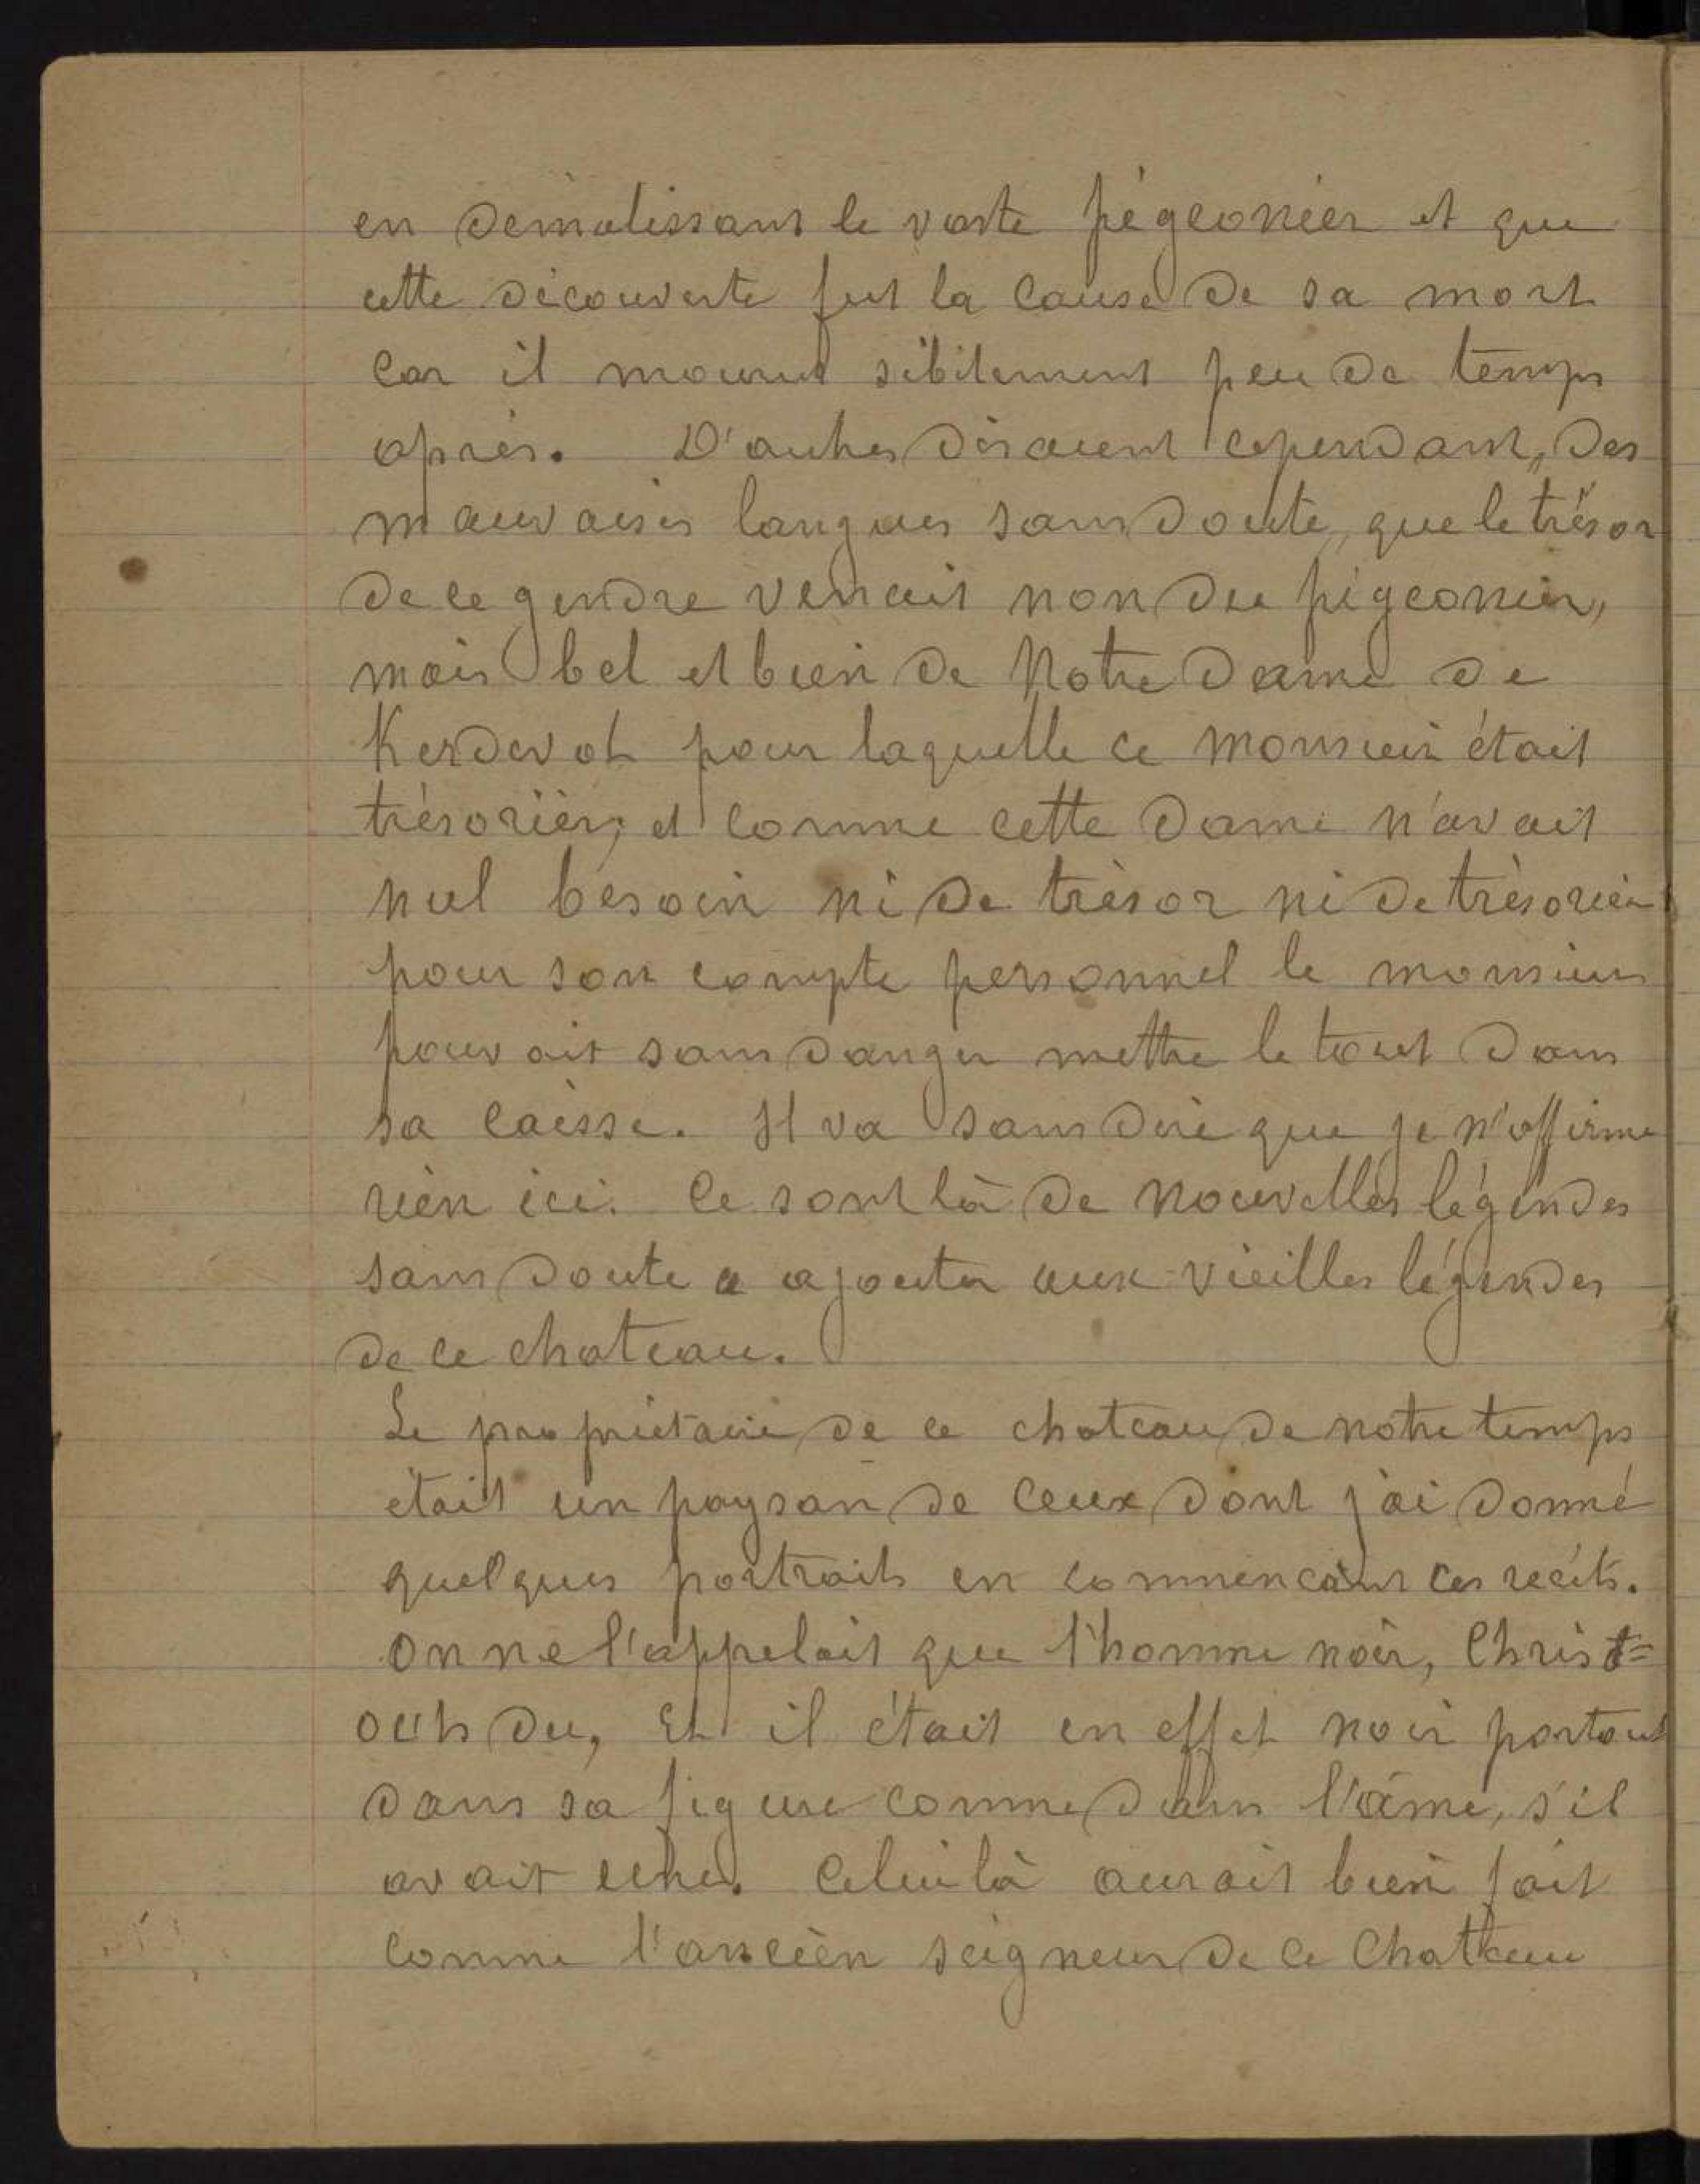 en démolissant le vaste pégeonier et que
cette découverte fut la cause de sa mort
car il mourut sibitement peu de temps
après. D'autres disaient cependant, des
mauvaises langues sans doute, que le trésor
de ce gendre venait non du pigeonier,
mais bel et bien de Notre Dame de
Kerdevot pour laquelle ce monsieur était
trésorier, et comme cette dame n'avait
nul besoin ni de trésor ni de trésorier
pour son compte personnel le monsieur
pouvait sans danger mettre le tout dans
sa caisse. Il va sans dire que je n'affirme
rien ici. Ce sont là de nouvelles légendes
sans doute a ajouter aux vieilles légendes
de ce chateau.
Le propriétaire de ce chateau de notre temps
était un paysan de ceux dont j'ai donné
quelques portraits en commencant ces récits.
On ne l'appelait que l'homme noir, Christ=
ouh du, Et il était en effet noir partout
dans sa figure comme dans l'âme, s'il
avait une. Celui là aurait bien fait
comme l'ancien seigneur de ce Chateau